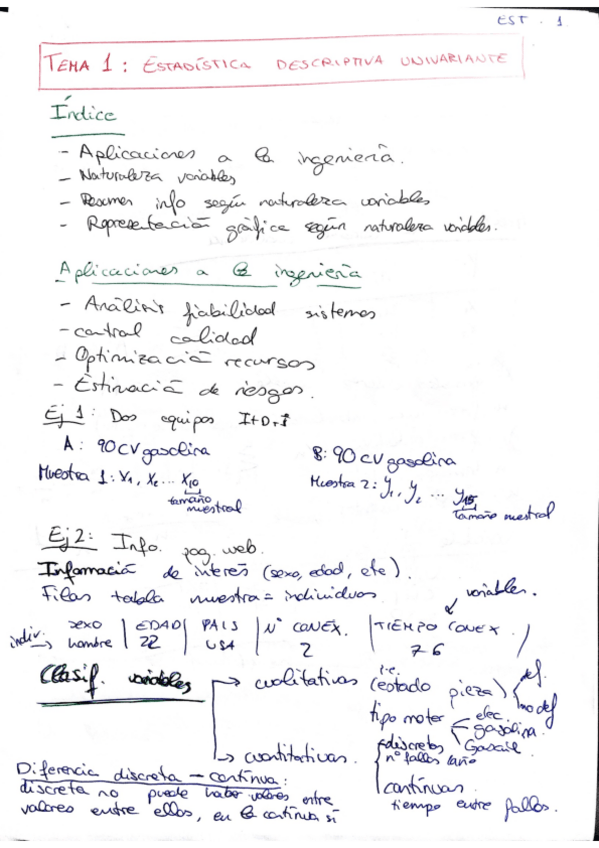 EST. 1
TEMA 1: ESTADÍSTICA DESCRIPTIVA UNIVARIANTE
Índice
- Aplicaciones a la ingeniería.
- Naturaleza variables
- Resumen info según naturaleza variables
- Representación gráfica según naturaleza variables.
Aplicaciones a la ingeniería
- Análisis fiabilidad sistemas
- control calidad
- Optimización recursos
- Estimación de riesgos.
Ej 1: Dos equipos I+D+I
A: 90 CV gasolina B: 90 CV gasolina
Muestra 1: x₁, x₂ ... x₁₀ Muestra 2: y₁, y₂ ... y₁₅
tamaño muestral tamaño muestral
Ej 2: Info. pag. web.
Información de interés (sexo, edad, etc).
Filas tabla muestra = individuos variables.
SEXO | EDAD | PAIS | Nº CONEX. | TIEMPO CONEX.
indiv. → hombre 22 USA 2 76
Clasif. variables
→ cualitativas i.e. (estado pieza) { def. no def
tipo motor elec. gasolina. Gasoil
→ cuantitativas. discretas nº fallos /año
continuas tiempo entre fallos.
Diferencia discreta - continua:
discreta no puede haber valores entre
valores entre ellos, en la continua sí